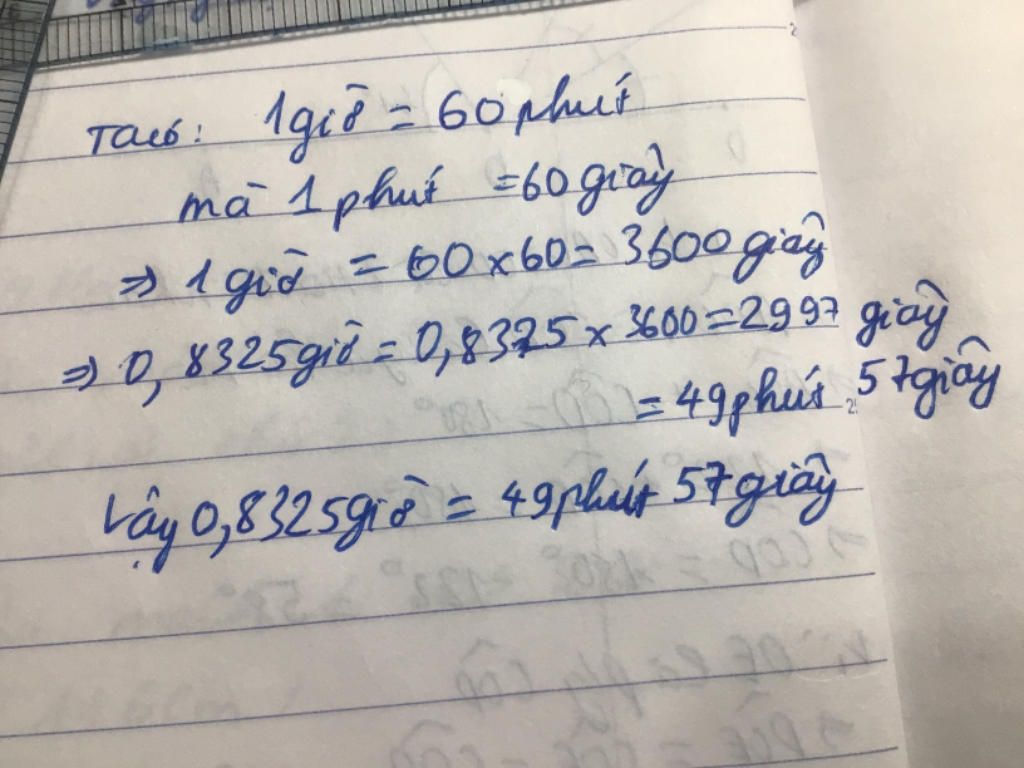 Ta có: 1 giờ = 60 phút
mà 1 phút = 60 giây
=> 1 giờ = 60 x 60 = 3600 giây
=> 0,8325 giờ = 0,8325 x 3600 = 2997 giây
= 49 phút 57 giây
Vậy 0,8325 giờ = 49 phút 57 giây